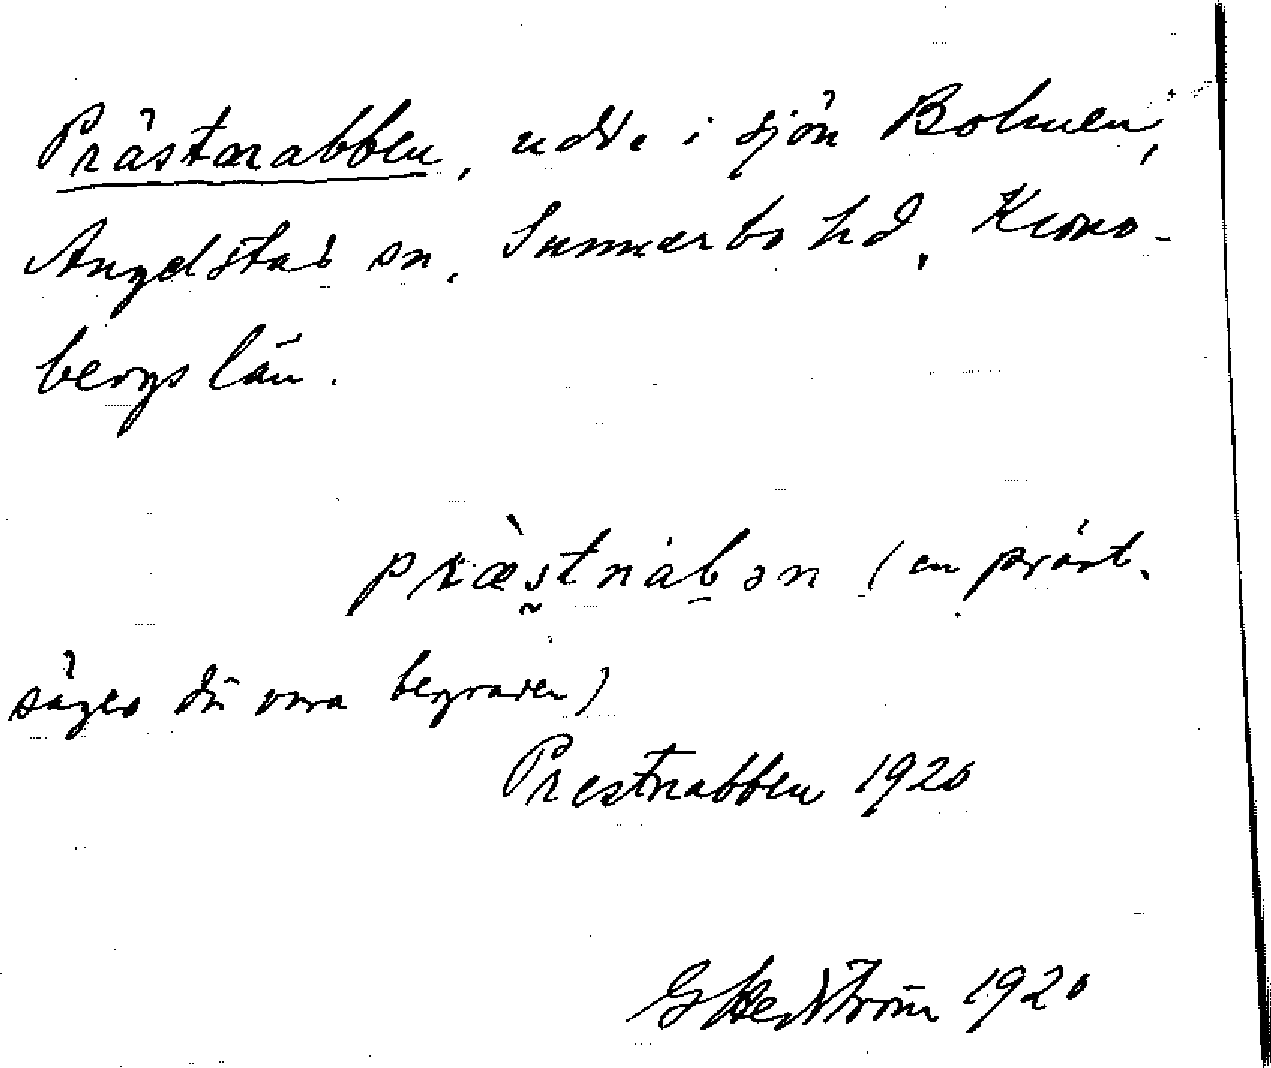 Prästnabben, udde i sjön Bolmen,
Angelstad sn, Sunnerbo hd, Krono-
bergs län.
præ̀stnábən (en präst
säges där vara begraven)
Prestnabben 1920
G Hedström 1920